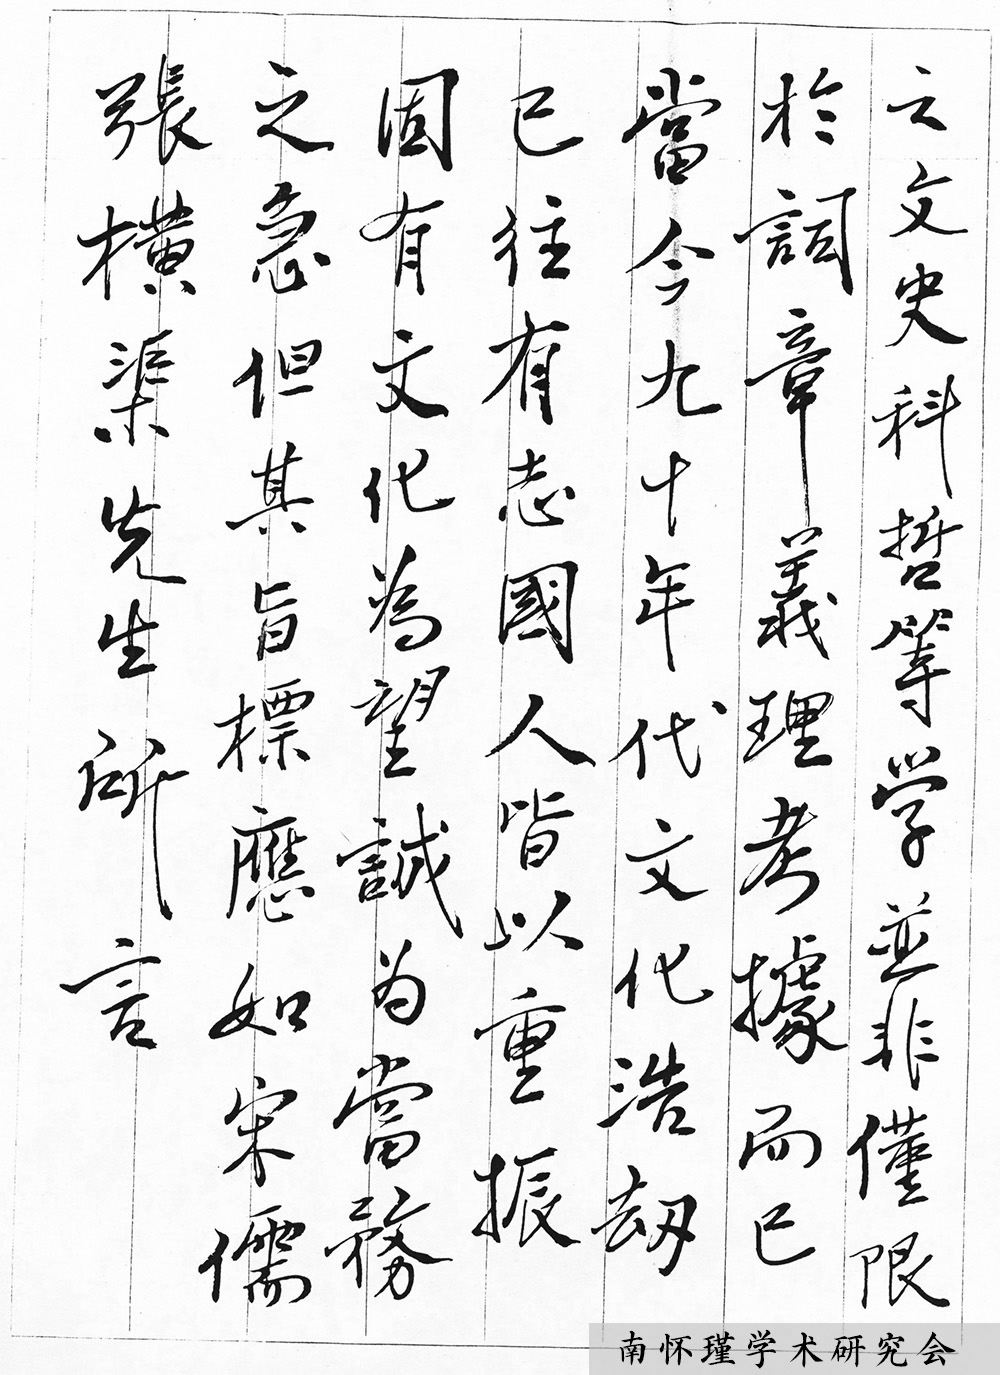 云文史科哲等学並非僅限
於詞章義理考據而已
當今九十年代文化浩劫
已往有志國人皆以重振
固有文化為望誠为當務
之急但其旨標應如宋儒
張橫渠先生所言
南怀瑾学术研究会